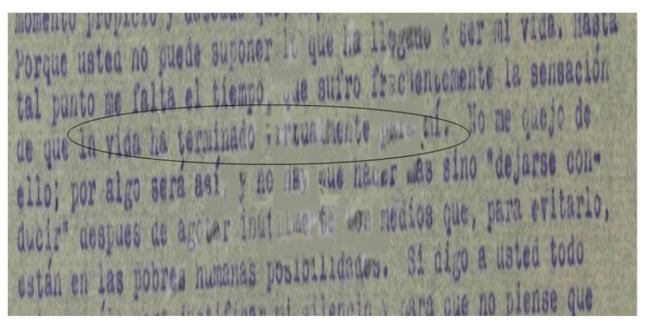 momento propicio y
Porque usted no puede suponer lo que ha llegado a ser mi vida. Hasta
tal punto me falta el tiempo, que sufro frecuentemente la sensación
de que la vida ha terminado virtualmente para mí. No me quejo de
ello; por algo será así, y no hay que hacer más sino "dejarse con-
ducir" después de agotar inutilmente los medios que, para evitarlo,
están en las pobres humanas posibilidades. Si digo a usted todo
justificar mi silencio y para que no piense que